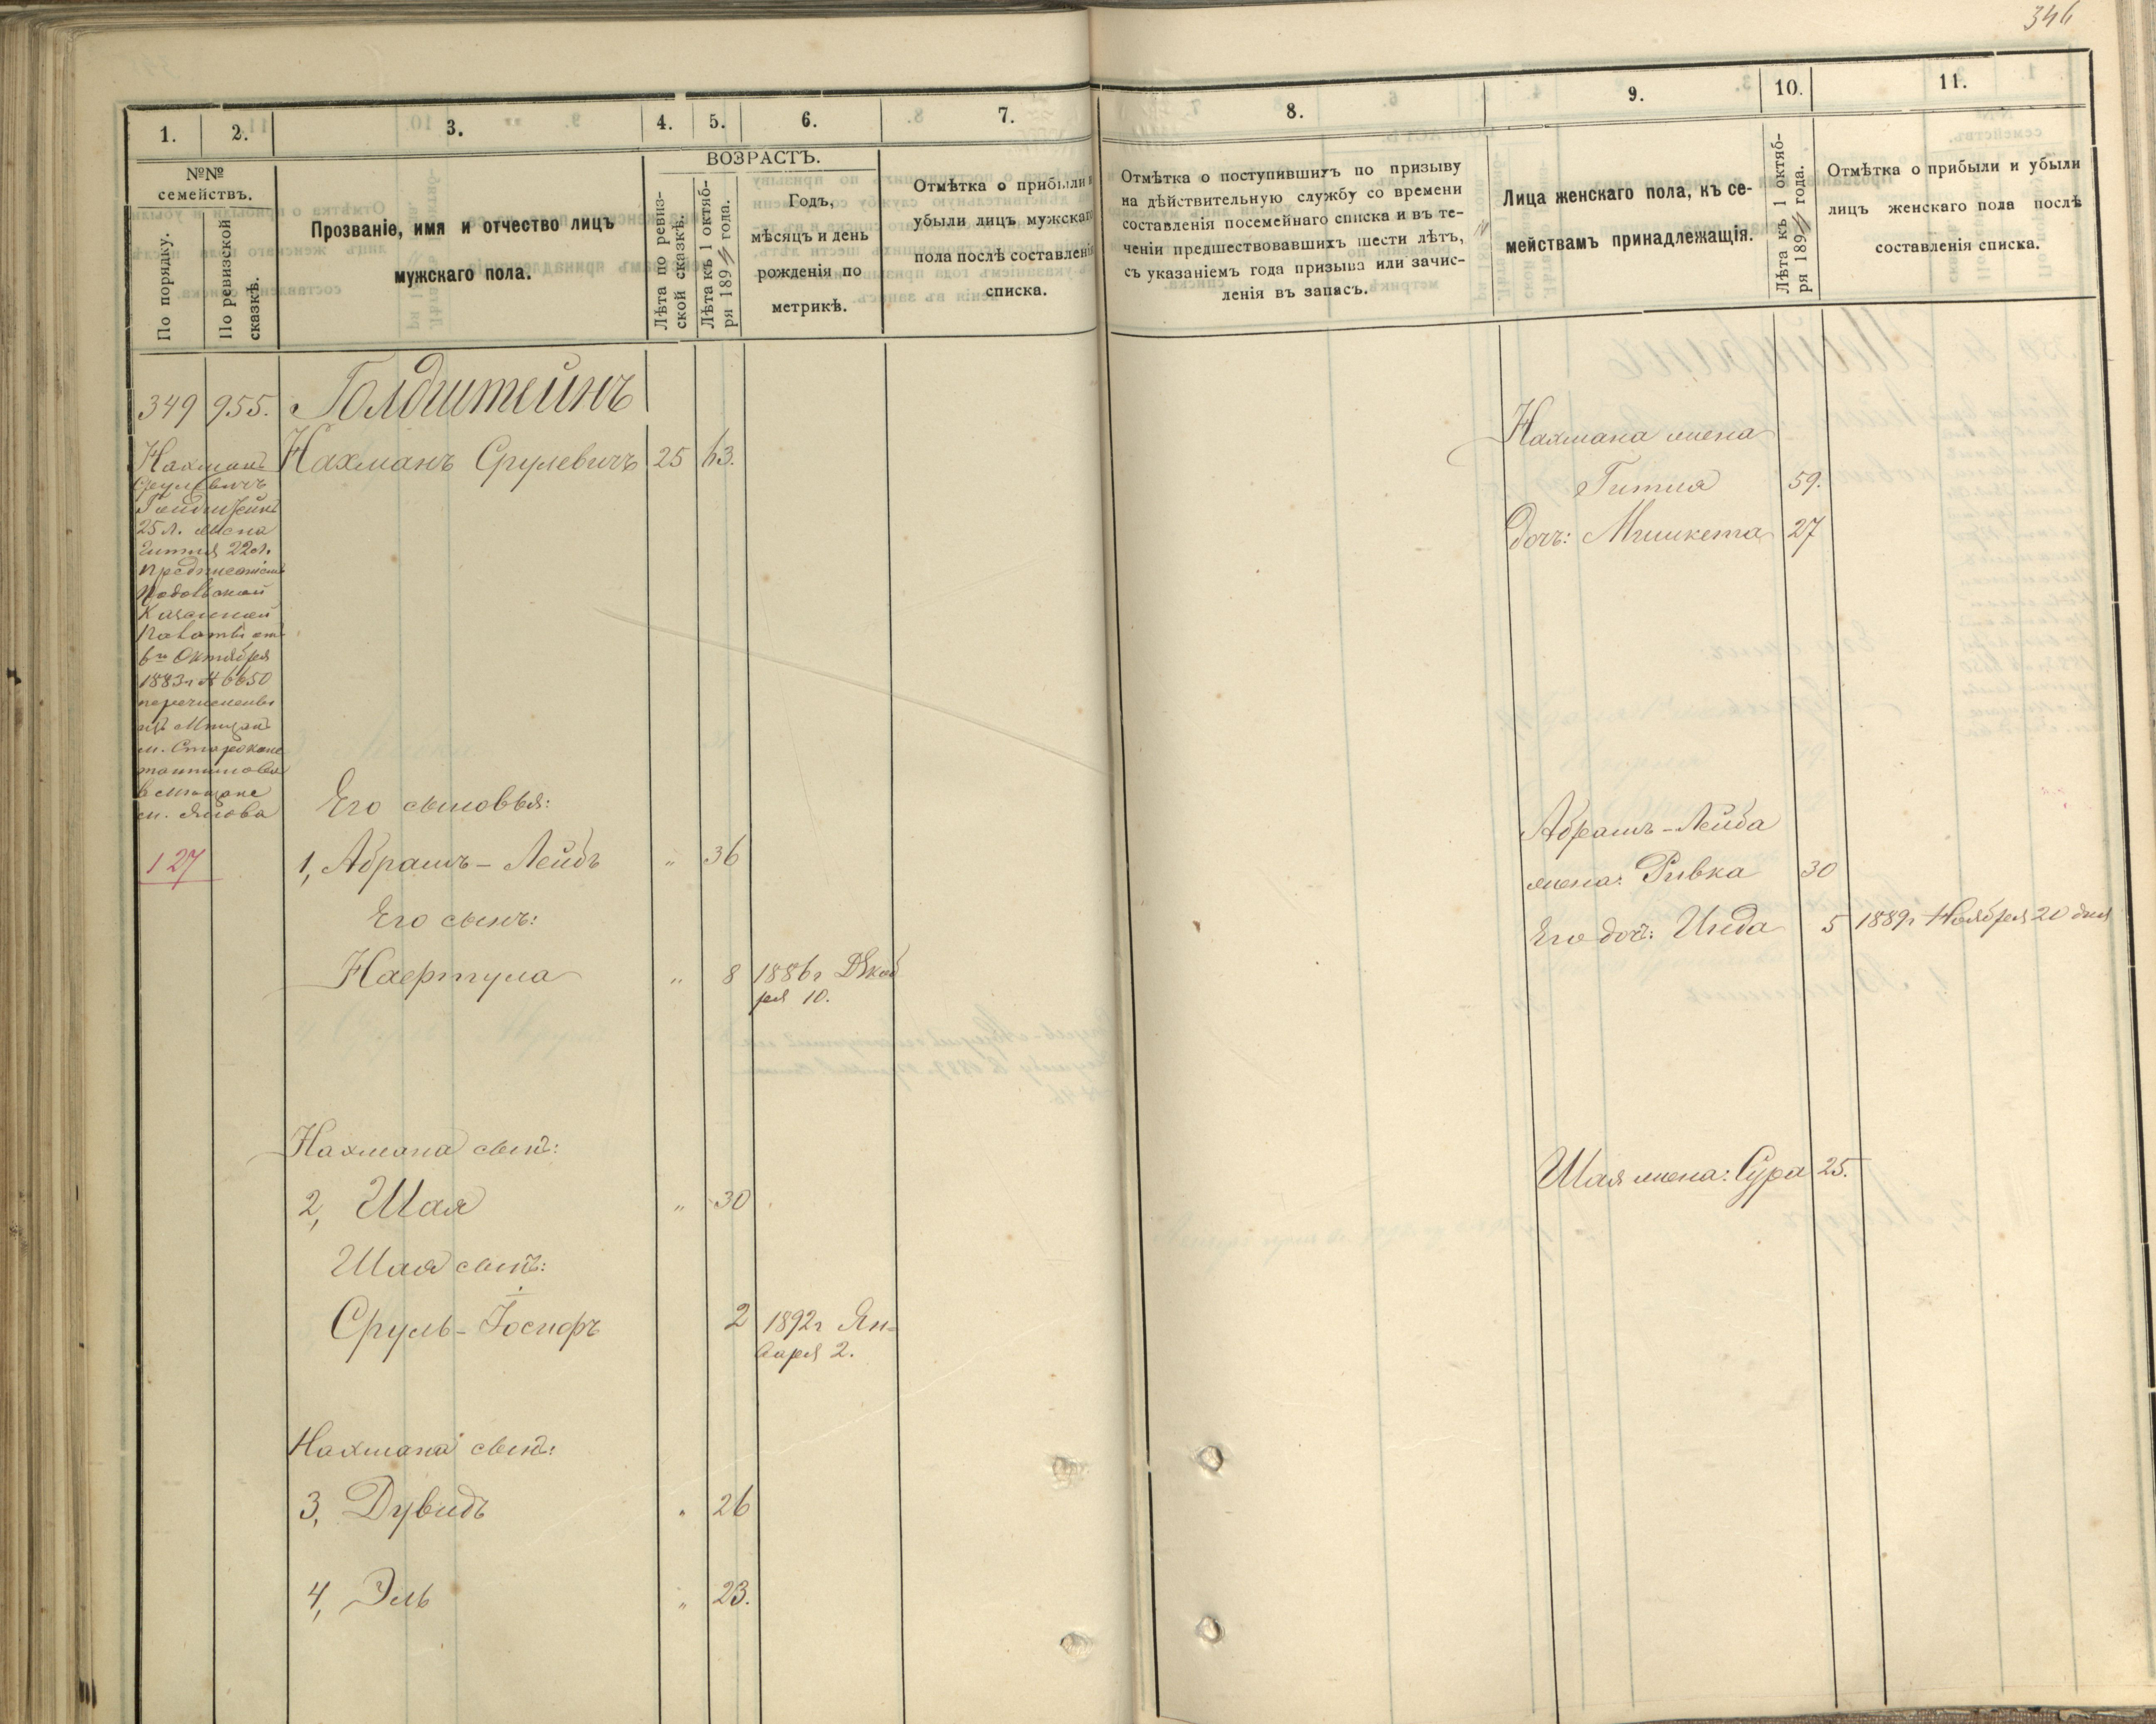 346
1.
2.
3.
4.
5.
6.
7.
8.
9.
10.
11.
№№
семействъ.
По порядку.
По ревизской
сказкѣ.
Прозваніе, имя и отчество лицъ
мужскаго пола.
ВОЗРАСТЪ.
Лѣта по ревиз-
ской сказкѣ.
Лѣта къ 1 октяб-
ря 1894 года.
Годъ,
мѣсяцъ и день
рожденія по
метрикѣ.
Отмѣтка о прибыли и
убыли лицъ мужскаго
пола послѣ составленія
списка.
Отмѣтка о поступившихъ по призыву
на дѣйствительную службу со времени
составленія посемейнаго списка и въ те-
ченіи предшествовавшихъ шести лѣтъ,
съ указаніемъ года призыва или зачис-
ленія въ запасъ.
Лица женскаго пола, къ се-
мействамъ принадлежащія.
Лѣта къ 1 октяб-
ря 1894 года.
Отмѣтка о прибыли и убыли
лицъ женскаго пола послѣ
составленія списка.
349 955. Голдштейнъ
Нахманъ Срулевичъ 25 63.
Нахманъ
Срулевичъ
Голдштейнъ
25 л. жена
Гитля 22 л.
предписаніемъ
Подольской
Казенной
Палаты отъ
6го Октября
1883 г № 6650
перечислены
изъ Мѣщанъ
м. Старокон
тантинова
въ Мѣщане
м. Янова
127
Его сыновья:
1, Абрамъ-Лейбъ " 36
Его сынъ:
Нафтула " 8 1886 г Декаб
ря 10.
Нахмана сынъ:
2, Шая " 30
Шая сынъ:
Сруль-Іосифъ 2 1892 г Ян-
варя 2.
Нахмана сынъ:
3, Дувидъ " 26
4, Эль " 23.
Нахмана жена
Гитля 59.
Дочь: 27
Абрамъ-Лейба
жена: Ривка 30
Его дочь: Инда 5 1889 г Ноября 20 дня
Шая жена: Сура 25.